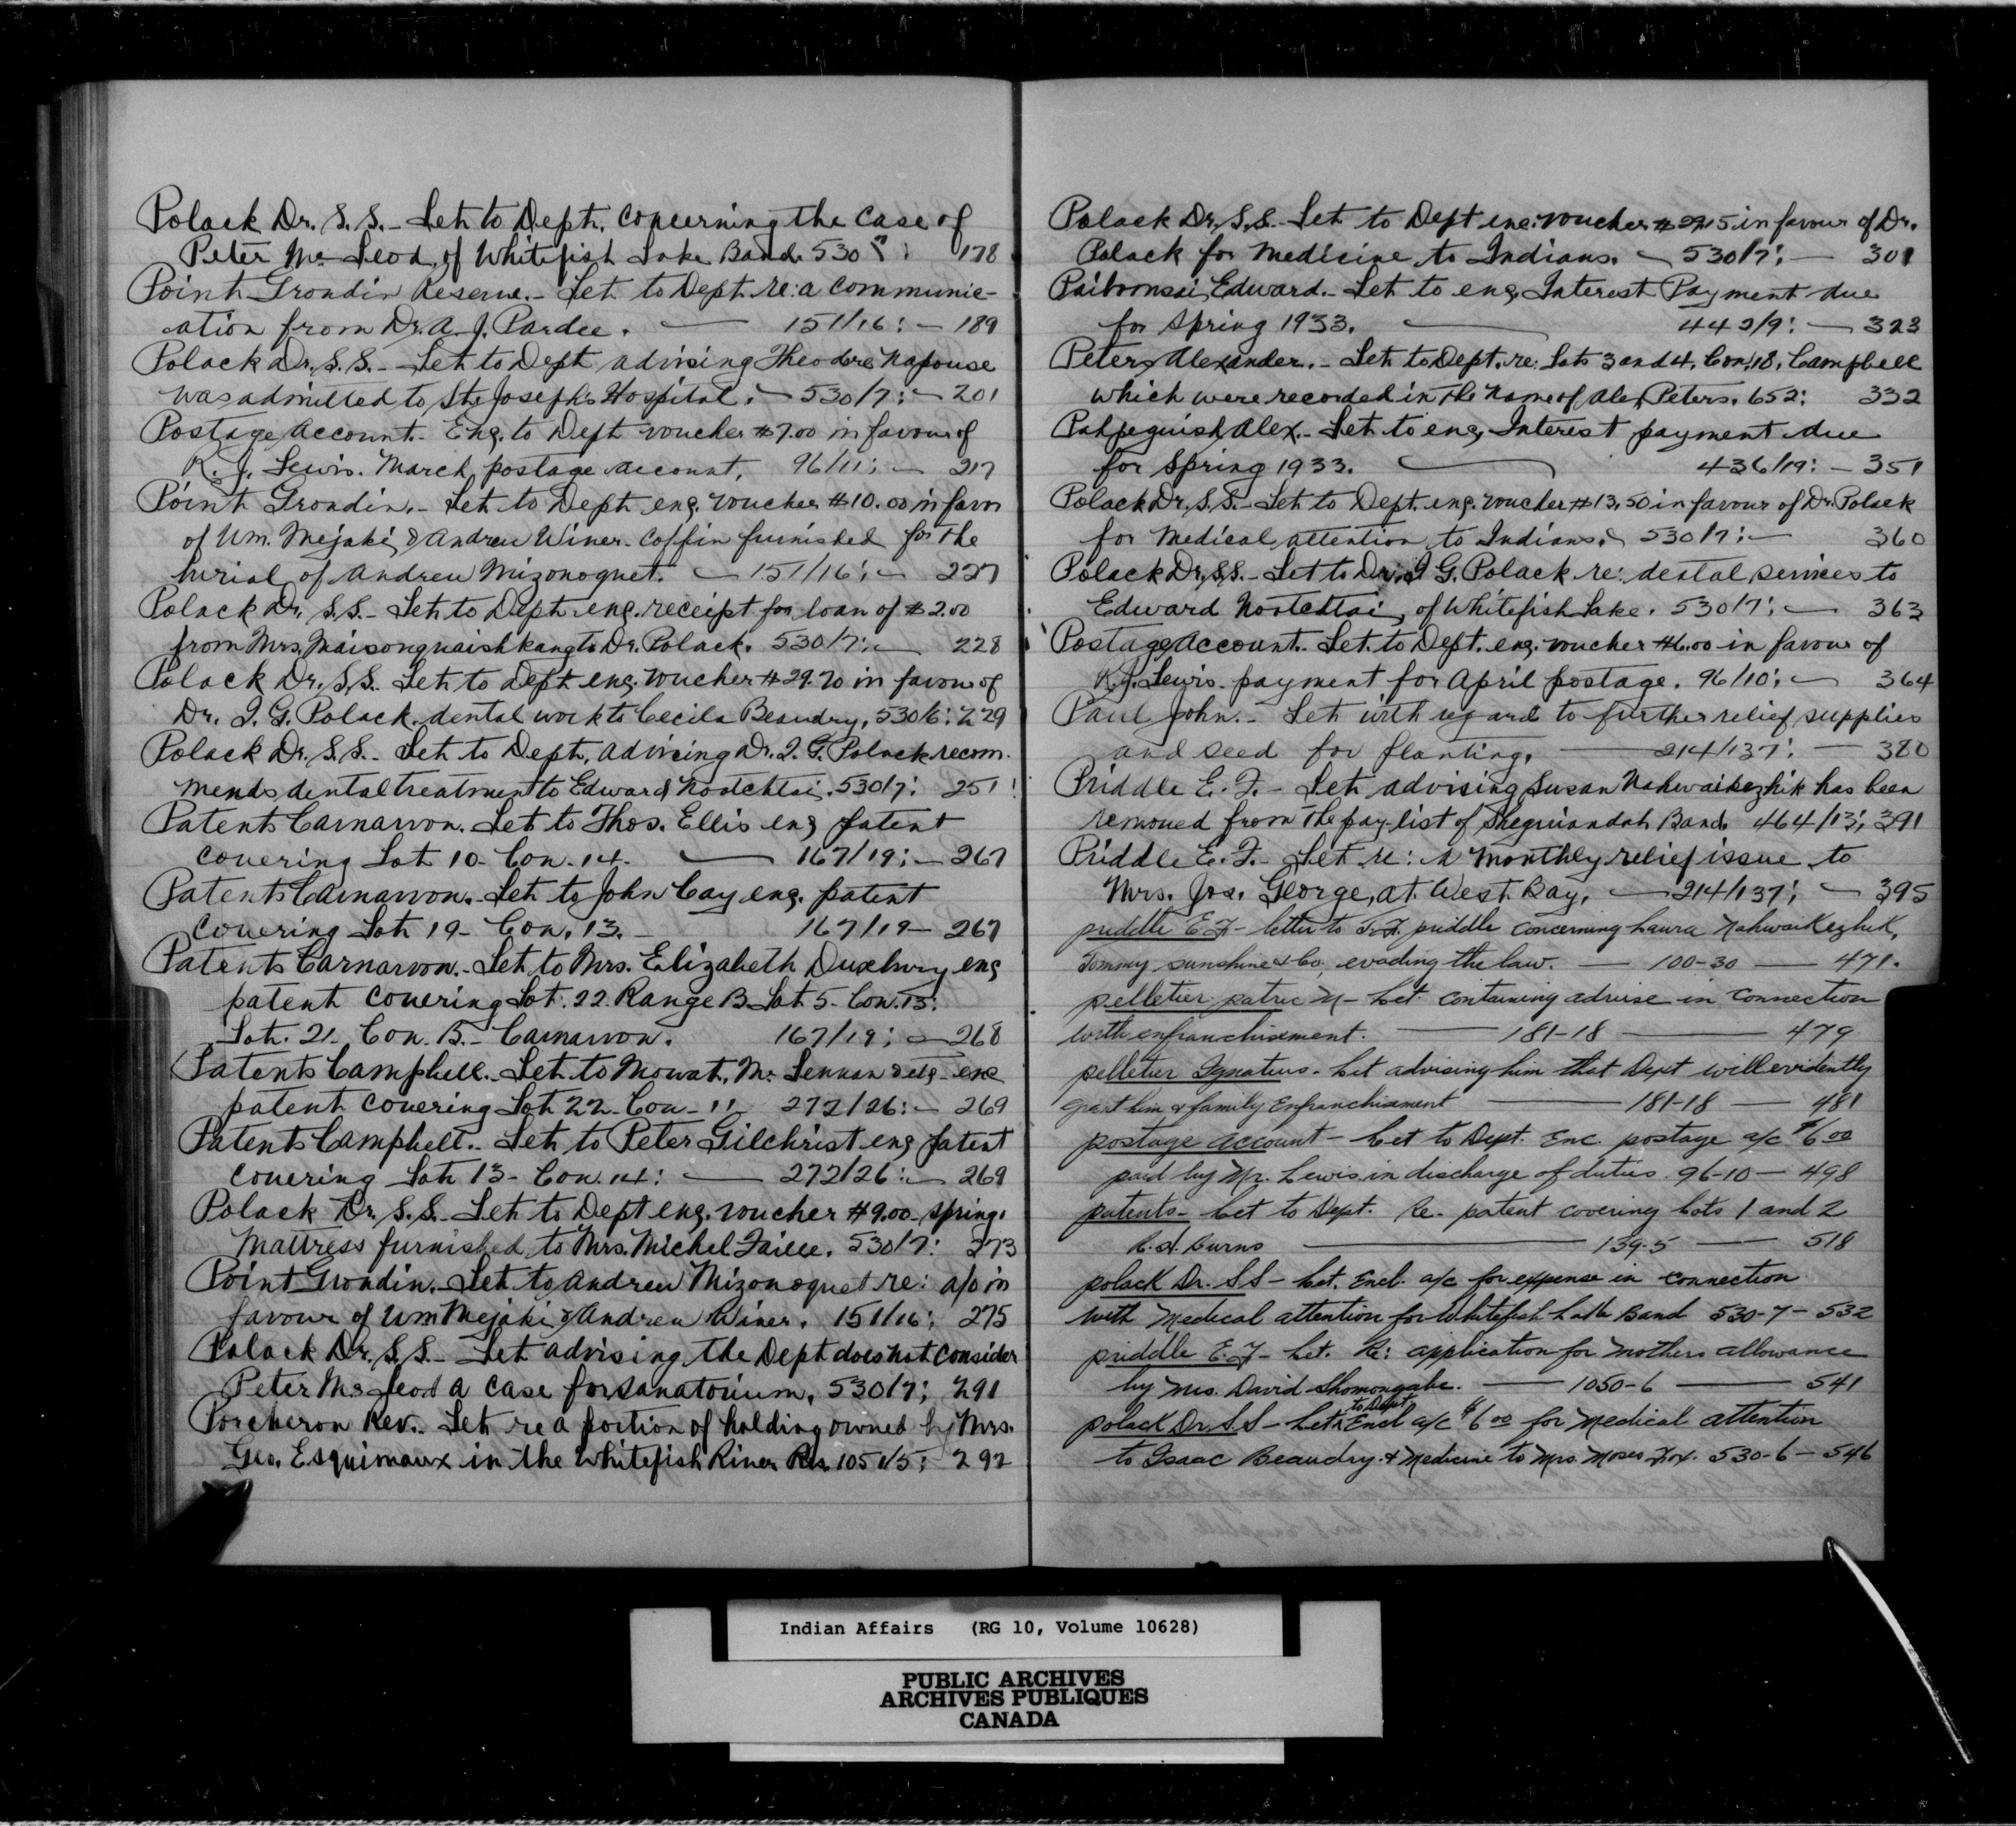 Polack Dr. S. S. - Let. to Dept. concerning the case of
Peter McLeod, of Whitefish Lake Band. 530 178
Point Grondin Reserve. - Let. to Dept. re: a communic-
ation from Dr. A. J. Pardee. — 151/16: - 189
Polack Dr. S. S. - Let to Dept advising Theodore Napouse
was admitted to St. Joseph's Hospital. - 530/7: - 201
Postage Account. - Enc. to Dept voucher $7.00 in favour of
R. J. Lewis. March, postage account. 96/11: - 217
Point Grondin. - Let to Dept. enc. voucher $10.00 in favor
of Wm. Mejaki & Andrew Winer. coffin furnished for the
burial of Andrew Mizonoquet. - 151/16: - 227
Polack Dr. S. S. - Let to Dept. enc. receipt for loan of $2.00
from Mrs. Maisonquaishkang to Dr. Polack. 530/7: - 228
Polack Dr. S. S. Let to dept enc. voucher $29.70 in favour of
Dr. I. G. Polack. dental work to Cecila Beaudry, 530/6: 229
Polack Dr. S. S. - Let to Dept, advising Dr. I. G. Polack recom-
mends dental treatment to Edward Nootchtai. 530/7: 251
Patents Carnarvon. Let to Thos. Ellis enc patent
covering Lot 10 - Con. 14. — 167/19: - 267
Patents Carnarvon. - Let to John Cay enc. patent
covering Lot 19 - Con. 13. - 167/19 - 267
Patents Carnarvon. - Let to Mrs. Elizabeth Duxbury enc
patent covering Lot. 22. Range B. Lot 5. Con. 15:
Lot. 21. Con. B. - Carnarvon. 167/19: - 268
Patents Campbell. - Let to Mowat, McLennan enc
patent covering Lot 22 - Con - 11 272/26: - 269
Patents Campbell. - Let to Peter Gilchrist enc patent
covering Lot 13 - Con. 14: — 272/26: - 269
Polack Dr. S. S. - Let to Dept enc. voucher $9.00 - spring.
mattress furnished to Mrs. Michel Faille. 530/7: 273
Point Grondin. - Let to Andrew Mizonoquet re: a/c in
favour of Wm Mejaki & Andrew Winer. 151/16: 275
Polack Dr. S. S. - Let advising the Dept does not consider
Peter McLeod a case for sanatorium, 530/7; 291
Porcheron Rev. - Let re a portion of holding owned by Mrs.
Geo. Esquimaux in the Whitefish River Res. 105 1/5: 292
Polack Dr. S. S. - Let to Dept enc: voucher in favour of Dr.
Polack for medicine to Indians. - 530/7: - 301
Edward. - Let to enc. Interest Payment due
for spring 1933. — 442/9: - 323
Peters Alexander. - Let to Dept. re: Lots 3 and 4, Con, 18, Campbell
which were recorded in the name of Alex Peters. 652: 332
Pahpeguish Alex. - Let to enc, Interest payment due
for Spring 1933. — 436/19: - 351
Polack Dr. S. S. - Let to Dept. enc. voucher $13.50 in favour of Dr. Polack
for Medical, attention to Indians. 530/7: - 360
Polack Dr, S,S. - Let to Dr. I G. Polack re: dental services to
Edward Nootchtai, of Whitefish Lake. 530/7: - 363
Postage Account. Let. to Dept. enc. voucher $6.00 in favour of
R. J. Lewis. payment for April postage. 96/10: - 364
Paul John. - Let with regard to further relief supplies
and seed for planting. — 214/137: - 380
Priddle E. F. - Let advising Susan Nahwaikezhik has been
removed from the pay-list of Sheguiandah Band. 464/13; 391
Priddle E. F. - Let re: a monthly relief issue to
Mrs. Jos. George, at West Bay, - 214/137; - 395
priddle E.F - letter to E.F. priddle concerning Laura Nahwaikezhik,
Tommy sunshine & Co, evading the law. - 100-30 — 471.
pelletier patric - Let. containing advise in connection
with enfranchisement. — 181-18 — 479
pelletier Ignatius. Let advising him that Dept will evidently
grant him & family Enfranchisment — 181-18 — 481
postage account - Let to Dept. Enc. postage a/c $6 00
paid by Mr. Lewis in discharge of duties. 96-10 - 498
patents - Let to Dept. Re. patent covering Lots 1 and 2
Burns — 139-5 — 518
polack Dr. S S - Let. Encl. a/c for expense in connection
with Medical attention for Whitefish Lake Band 530-7 - 532
priddle E. F - Let. Re: application for mothers allowance
by Mrs. David Shomongabe. — 1050-6 — 541
to Dept
polack Dr. S.S - Let. Encl a/c $6 00 for Medical attention
to Isaac Beaudry & Medicine to Mrs. Moses Fox. 530-6 - 546
Indian Affairs (RG 10, Volume 10628)
PUBLIC ARCHIVES
ARCHIVES PUBLIQUES
CANADA